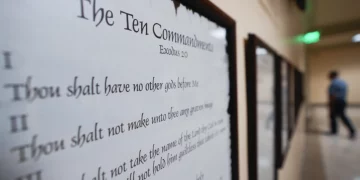 The Ten Commandments
Exodus 20
I
Thou shalt have no other gods before Me
II
Thou shalt not make unto thee any graven image
III
Thou shalt not take the name of the Lord thy God
will not hold him guiltless